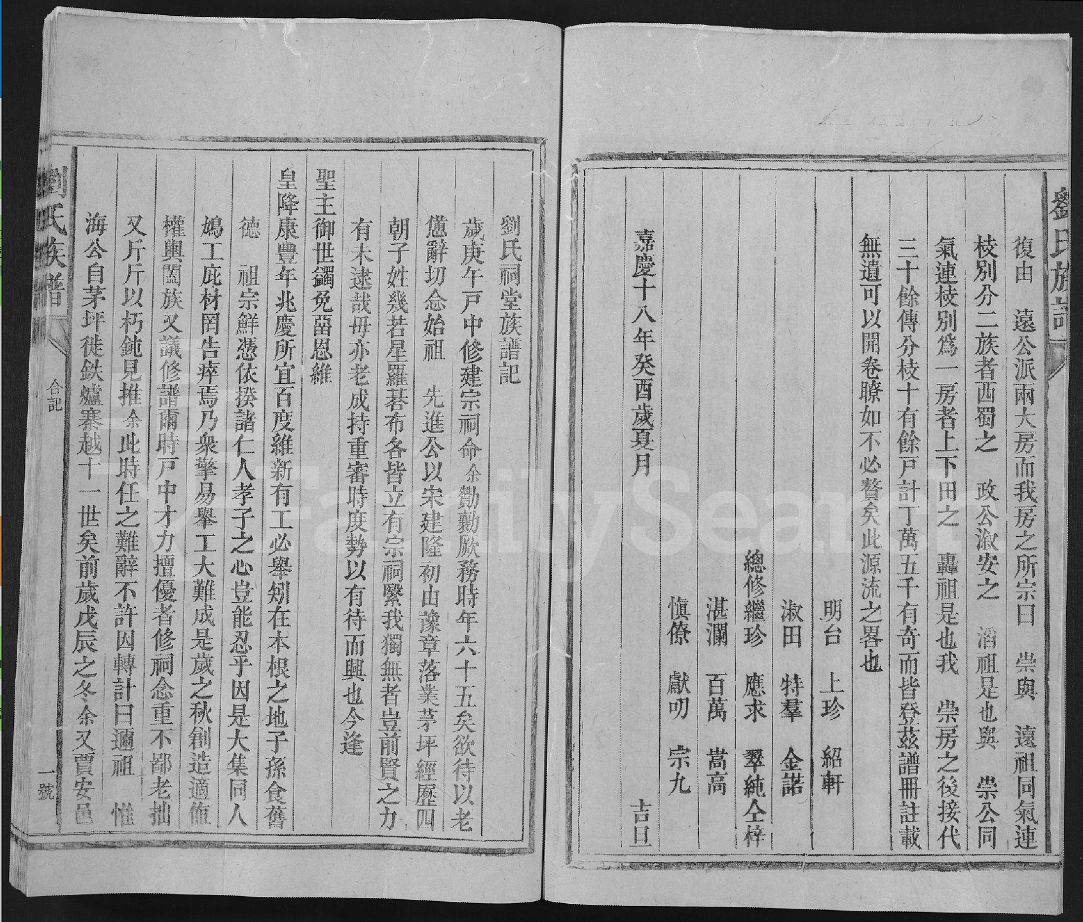 劉氏族譜
復由　遠公派兩大房而我房之所宗曰　崇與　遠祖同氣連
枝別分二族者西蜀之　政公淑安之　滔祖是也與　崇公同
氣連枝別爲一房者上下田之　轟祖是也我　崇房之後接代
三十餘傳分枝十有餘戸計丁萬五千有奇而皆登茲譜冊註載
無遺可以開卷瞭如不必贅矣此源流之畧也
明台　上珍　紹軒
淑田　特羣　金諾
總修繼珍　應求　翠純仝梓
湛瀾　百萬　嵩高
愼僚　獻叨　宗九
嘉慶十八年癸酉歲夏月　吉旦
劉氏祠堂族譜記
歲庚午戸中修建宗祠命余勷勷厥務時年六十五矣欲待以老
憊辭切念始祖　先進公以宋建隆初由豫章落業茅坪經歷四
朝子姓幾若星羅碁布各皆立有宗祠緊我獨無者豈前賢之力
有未逮哉毋亦老成持重審時度勢以有待而興也今逢
聖主御世蠲免啚恩維
皇降康豐年兆慶所宜百度維新有工必舉矧在本根之地子孫食舊
德　祖宗鮮憑依揆諸仁人孝子之心豈能忍乎因是大集同人
鳩工庇材罔告瘁焉乃衆擎易舉工大難成是歲之秋創造適値
權輿闔族又議修譜爾時戸中才力擅優者修祠念重不鄙老拙
又斤斤以朽鈍見推余此時任之難辭不許因轉計曰邇祖　惟
海公自茅坪徙鉄爐寨越十一世矣前歲戊辰之冬余又賈安邑
劉氏族譜
合記
一號
FamilySearch